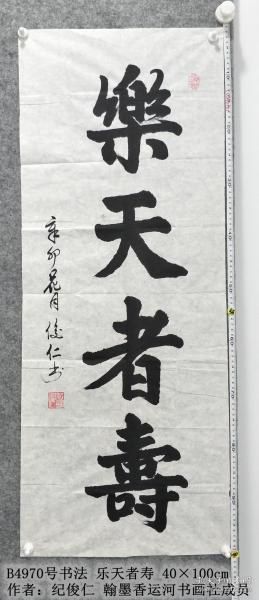 樂天者壽
辛卯花月俊仁书
B4970号书法 乐天者寿 40×100cm
作者：纪俊仁 翰墨香运河书画社成员